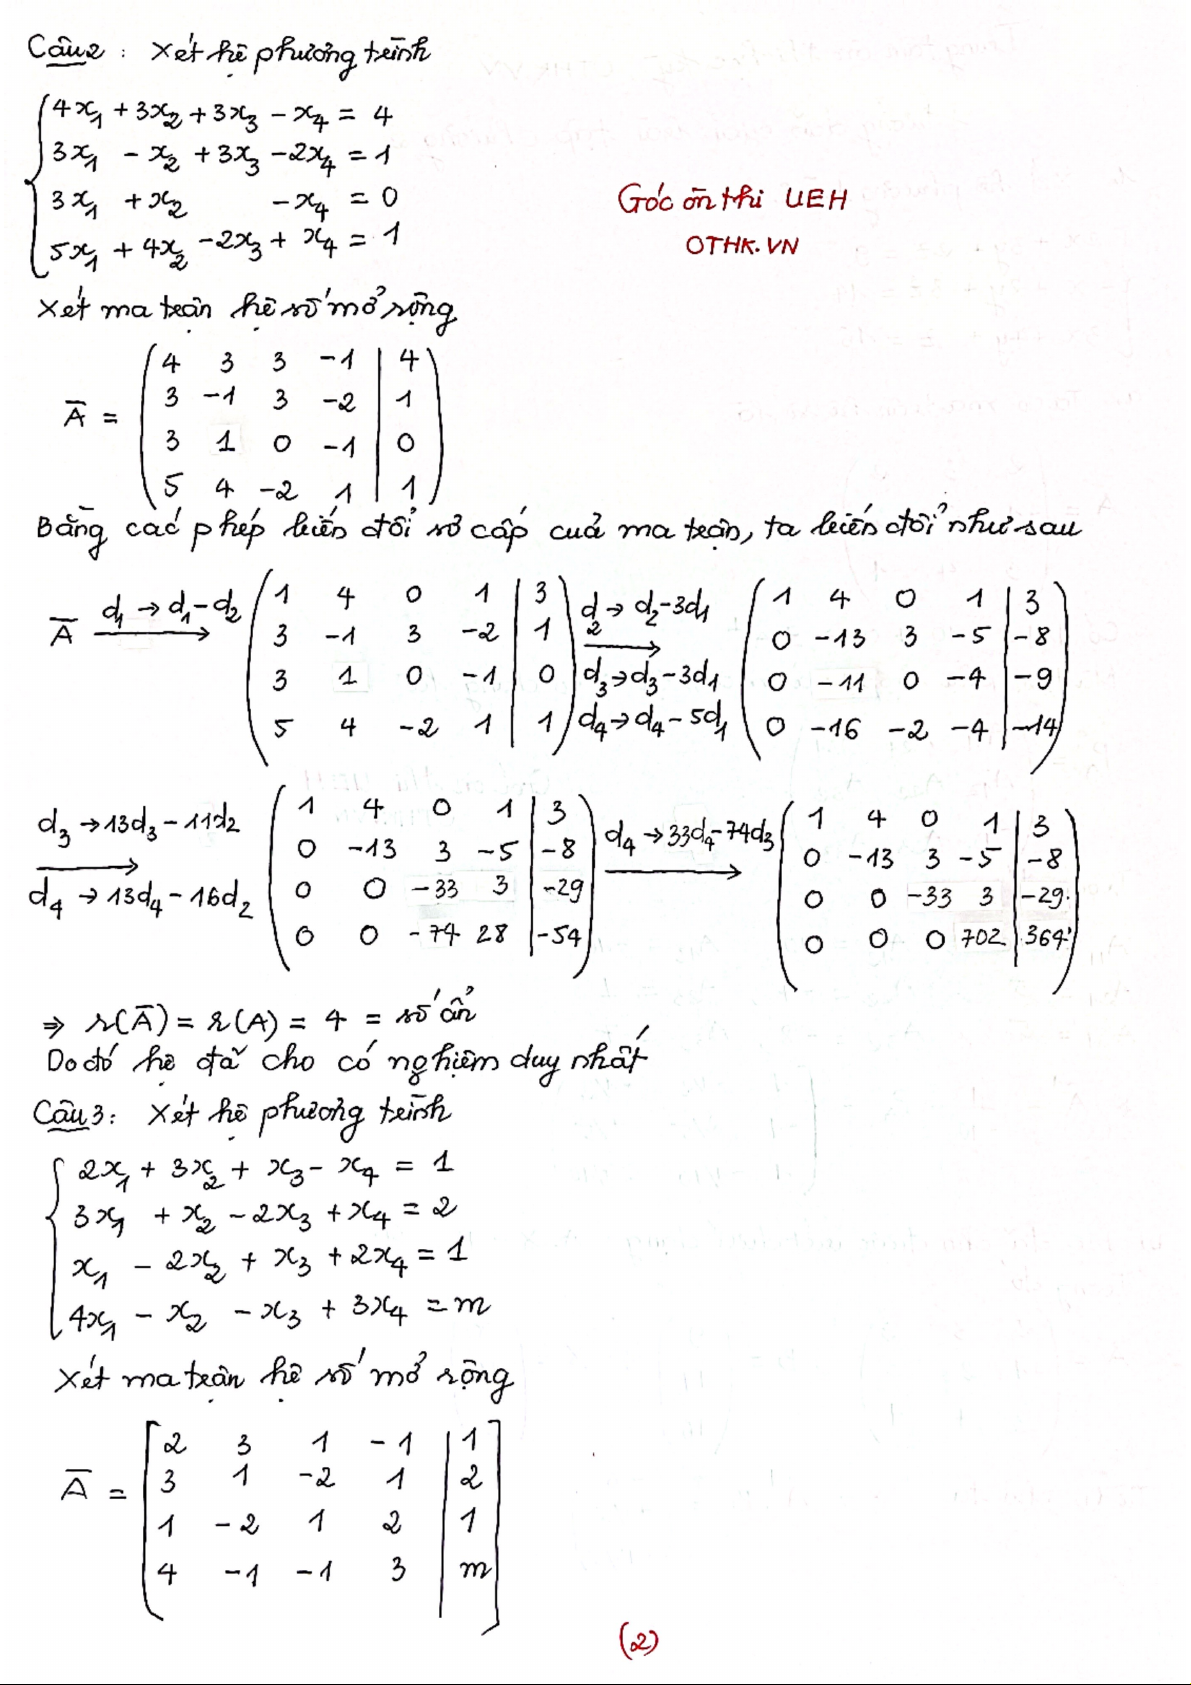 Câu 2 : Xét hệ phương trình
4x₁ + 3x₂ + 3x₃ - x₄ = 4
3x₁ - x₂ + 3x₃ - 2x₄ = 1
3x₁ + x₂ - x₄ = 0
Góc ôn thi UEH
5x₁ + 4x₂ - 2x₃ + x₄ = 1
OTHK.VN
Xét ma trận hệ số mở rộng
Ā = ( 4 3 3 -1 | 4
3 -1 3 -2 | 1
3 1 0 -1 | 0
5 4 -2 1 | 1 )
Bằng các phép biến đổi sơ cấp của ma trận, ta biến đổi như sau
Ā d₁ → d₁ - d₂ ( 1 4 0 1 | 3
3 -1 3 -2 | 1
3 1 0 -1 | 0
5 4 -2 1 | 1 )
d₂ → d₂ - 3d₁
d₃ → d₃ - 3d₁
d₄ → d₄ - 5d₁
( 1 4 0 1 | 3
0 -13 3 -5 | -8
0 -11 0 -4 | -9
0 -16 -2 -4 | -14 )
d₃ → 13d₃ - 11d₂
d₄ → 13d₄ - 16d₂
( 1 4 0 1 | 3
0 -13 3 -5 | -8
0 0 -33 3 | -29
0 0 -74 28 | -54 )
d₄ → 33d₄ - 74d₃
( 1 4 0 1 | 3
0 -13 3 -5 | -8
0 0 -33 3 | -29
0 0 0 702 | 364 )
⇒ r(Ā) = r(A) = 4 = số ẩn
Do đó hệ đã cho có nghiệm duy nhất
Câu 3: Xét hệ phương trình
2x₁ + 3x₂ + x₃ - x₄ = 1
3x₁ + x₂ - 2x₃ + x₄ = 2
x₁ - 2x₂ + x₃ + 2x₄ = 1
4x₁ - x₂ - x₃ + 3x₄ = m
Xét ma trận hệ số mở rộng
Ā = [ 2 3 1 -1 | 1
3 1 -2 1 | 2
1 -2 1 2 | 1
4 -1 -1 3 | m ]
(2)